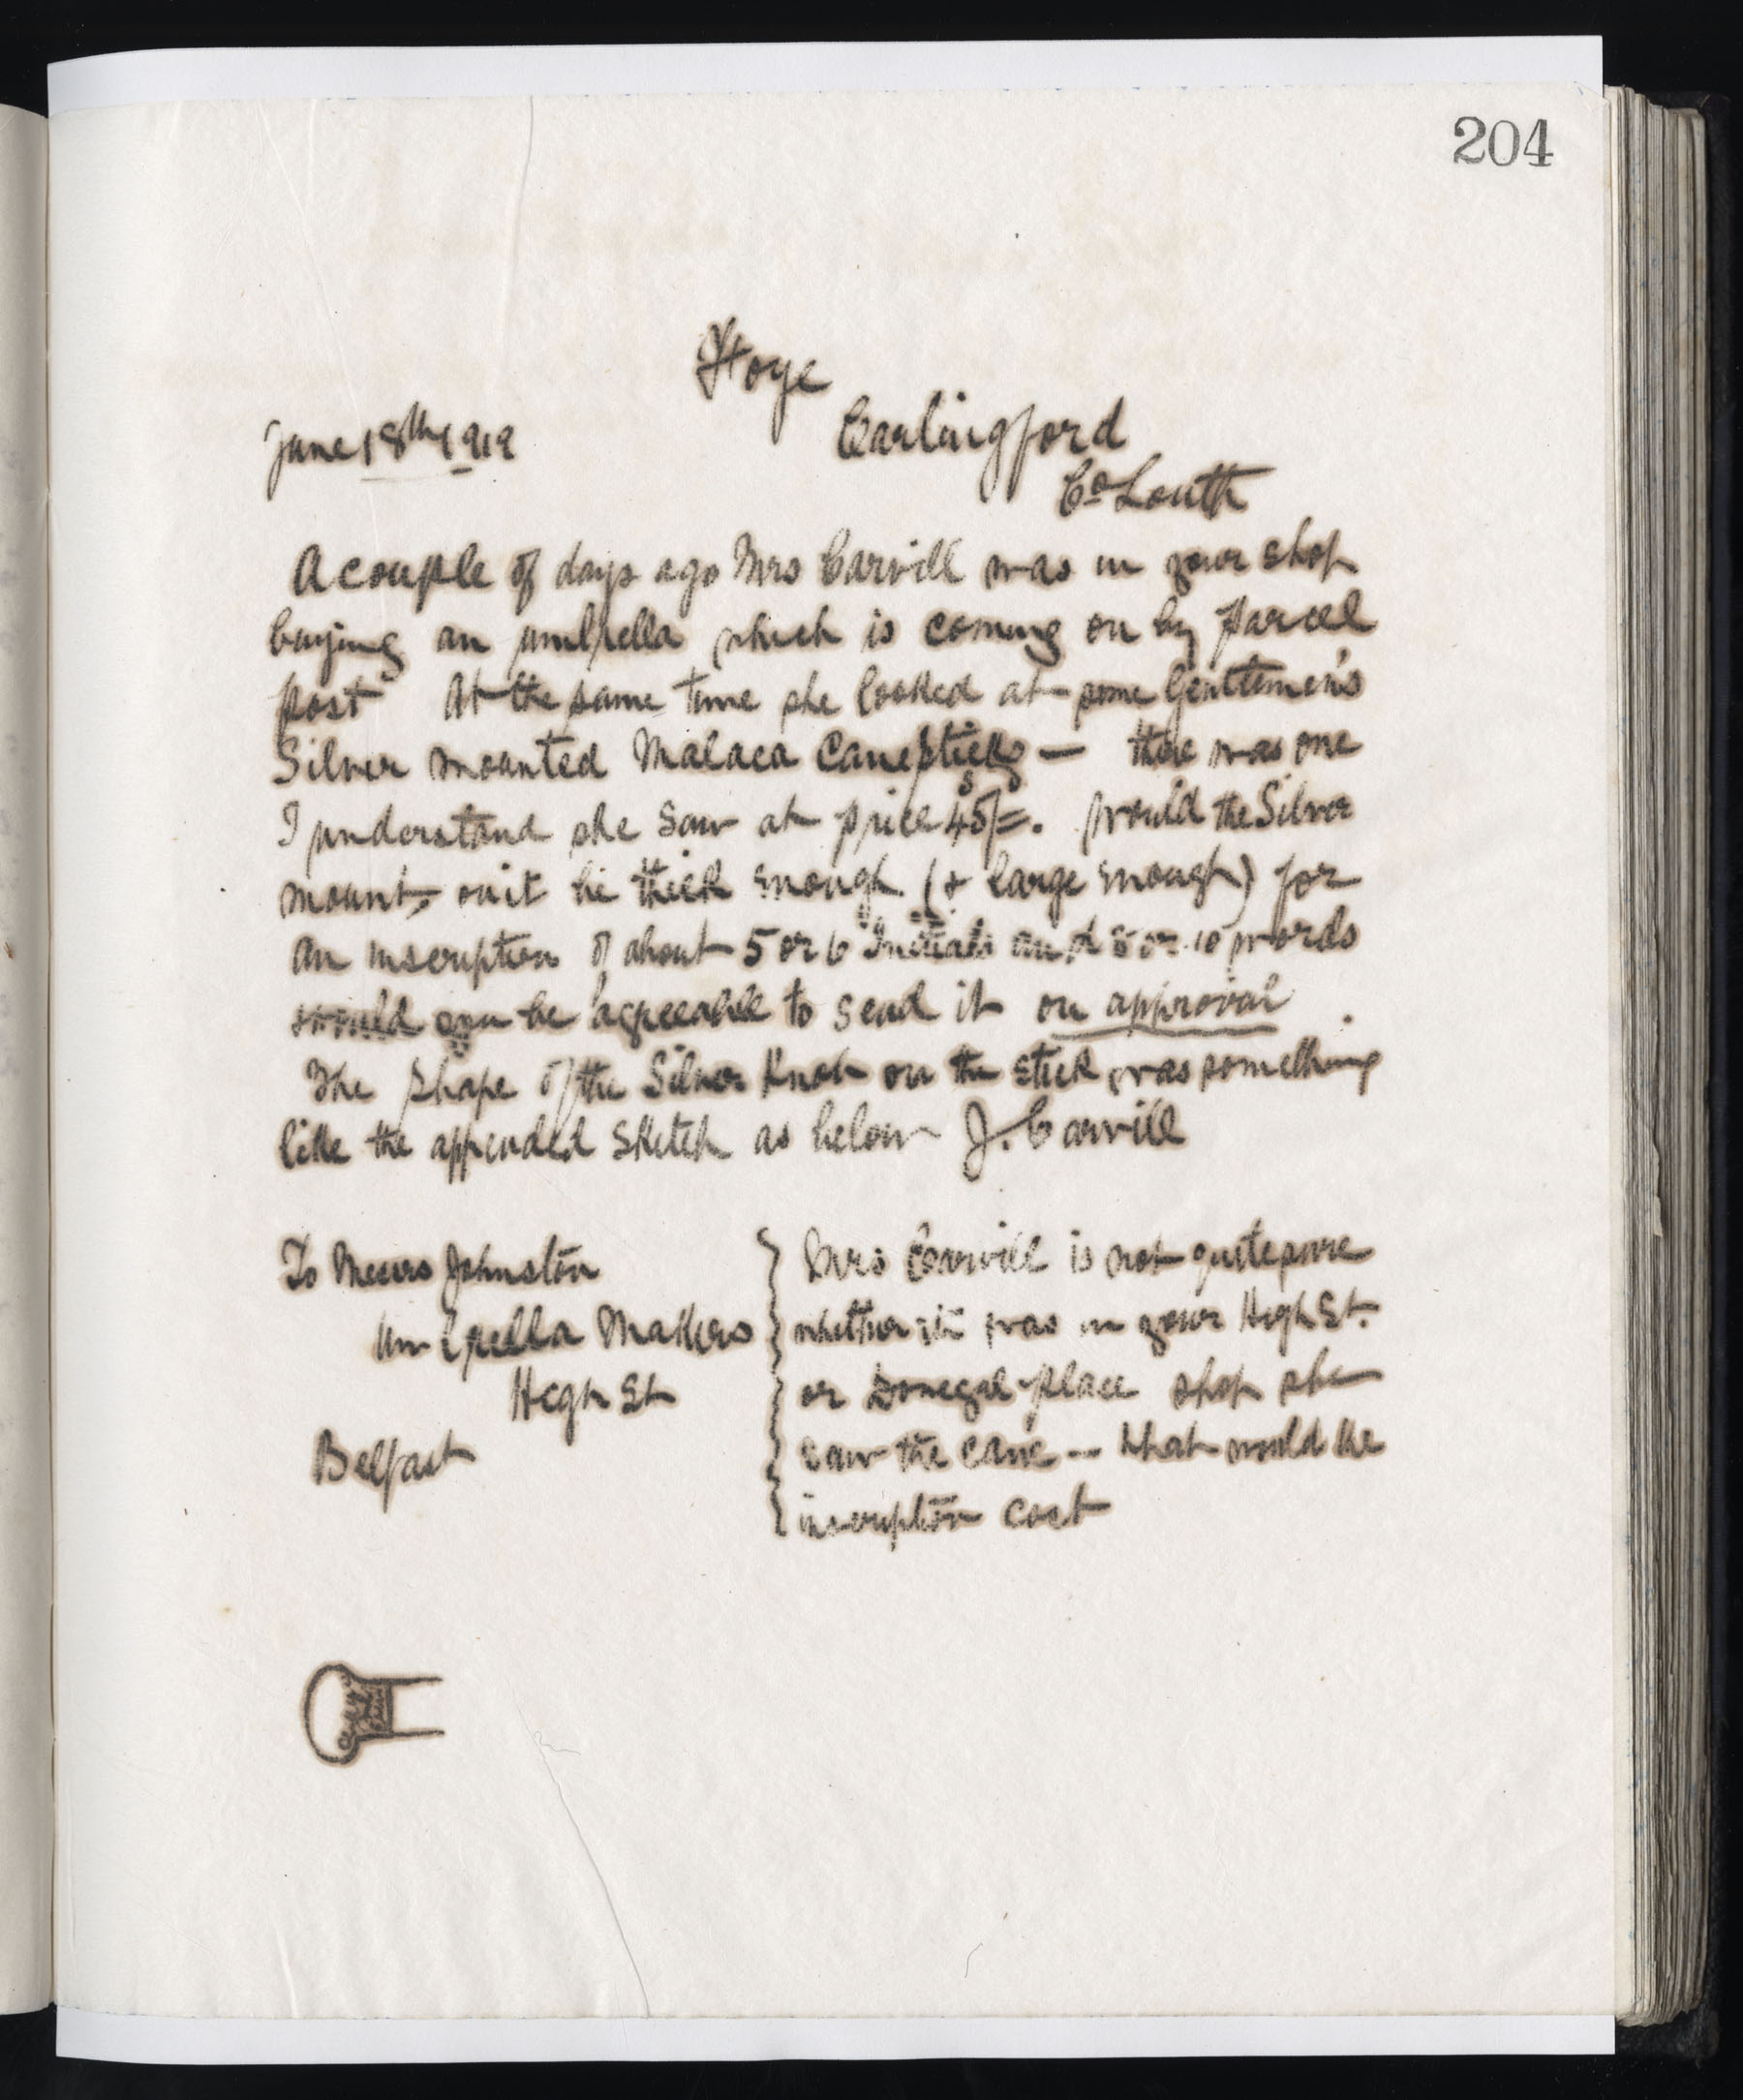 204
Hoye
Carlingford
June 18th 1912
Co Louth
A couple of days ago Mrs Carvill was in your shop
buying an umbrella which is coming on by parcel
post At the same time she looked at some Gentlemen's
Silver mounted Malaca Canesticks — there was one
I understand she saw at price 45/=. Would the Silver
mount on it be thick enough (& large enough) for
an inscription of about 5 or 6 Initials and 8 or 10 words
would you be agreeable to send it on approval.
The shape of the Silver Knob on the stick was something
like the appended sketch as below J. Carvill
To Messrs Johnston
Umbrella Makers
High St
Belfast
Mrs Carvill is not quite sure
whether it was in your High St.
or Donegal place shop she
saw the cane -- What would the
inscription cost